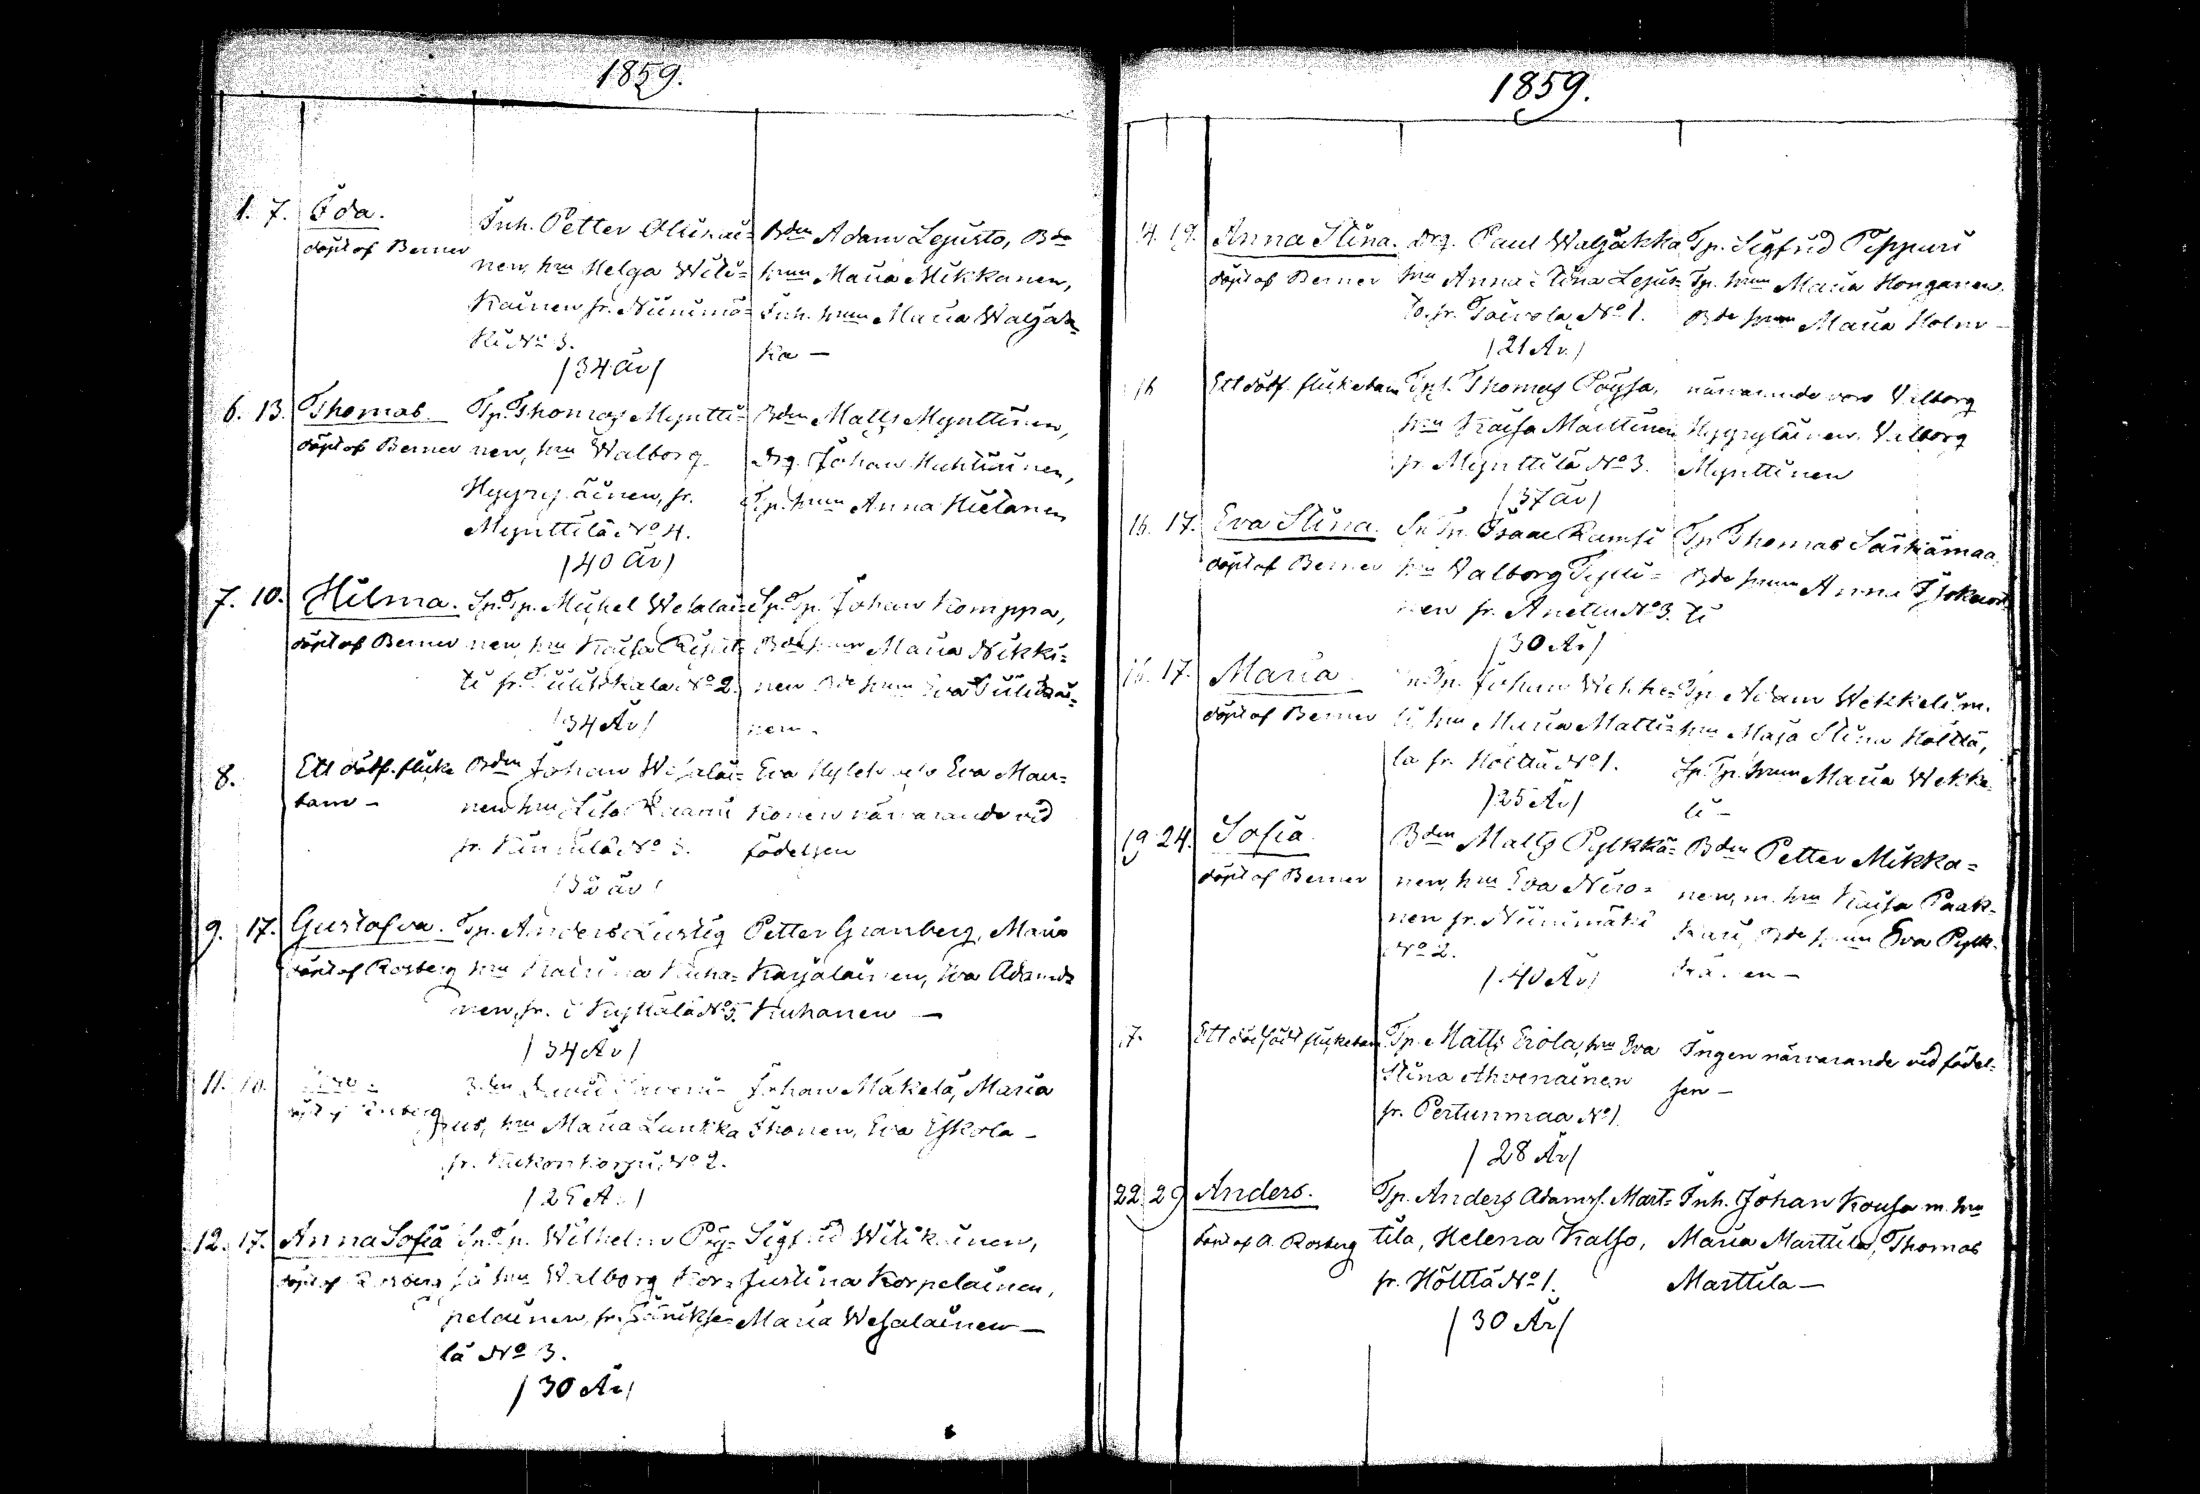 1859.
1. 7. Ida.
döpt af Berner
Inh. Petter Olikai-
nen, hru Helga Wili-
kainen fr. Niinimä-
ki No 3.
/34 år/
Bden Adam Lejusto, Bde
hrun Maria Mikkanen,
Inh. hrun Maria Waljak-
ka —
6. 13. Thomas.
döpt af Berner
Tp. Thomas Myntti-
nen, hru Walborg
Hyyryläinen, fr.
Mynttilä No 4.
/40 år/
Bden Matts Mynttinen,
Drg. Johan Huhtiinen,
Tp. hrun Anna Hietanen
7. 10. Hilma.
döpt af Berner
Sp. Tp. Michel Wesalai-
nen, hru Kaisa
ti fr. No 2.
/34 År/
Sp. Tp. Johan Komppa,
Bde hrun Maria Nikki-
nen Bde hrun Eva
nen.
8. Ett dödf. flicke
barn —
Bden Johan Wesalai-
nen hru
fr. No 3.
år/
Eva och Eva Man-
konen närvarande vid
födelsen
9. 17. Gustafva.
döpt af Rosberg
Tp. Anders Lustig
hru Katrina Kuha-
nen, fr. Kuhala No 5.
/34 År/
Petter Granberg, Maria
Karjalainen, Eva Adamsd.
Kuhanen —
11.
döpt af
Bden
pus, hru Maria Lunkka
fr. No 2.
/25 År/
Johan Mäkelä, Maria
Ihonen, Eva Eskola —
12. 17. Anna Sofia
döpt af Rosberg
Sn Tp. Wilhelm Pöy-
sä hru Walborg Kor-
pelainen, fr. Jänikse-
lä No 3.
/30 År/
Sigfrid Wilikainen,
Justina Korpelainen,
Maria Wesalainen —
1859.
14. 19. Anna Stina.
döpt af Berner
Drg. Paul Waljakka
hru Anna Stina Lejus-
to, fr. Toivola No 1.
/21 År/
Tp. Sigfrid Pippuri
Tp. hrun Maria Honganen.
Bde hrun Maria Holm —
16 Ett dödf. flickebarn
Tp. Thomas Pöysä,
hru Kaisa Marttinen
fr. Mynttilä No 3.
/37 år/
närvarande voro Valborg
Hyyryläinen, Valborg
Mynttinen
16. 17. Eva Stina.
döpt af Berner
Sn Tp. Isaac Ramsi
hru Valborg
nen fr. Anettu No 3.
/30 År/
Tp Thomas Särkämaa,
Bde hrun Anna
ti
16. 17. Maria
döpt af Berner
Sn Tp. Johan Wekke-
li, hru Maria Matti-
la fr. Hölttä No 1.
/25 År/
Tp. Adam Wekkeli m.
hru Maja Stina Hölttä,
Sp. Tp. hrun Maria Wekke-
li —
19 24. Sofia.
döpt af Berner
Bden Matts Pylkkä-
nen, hru Eva Niro-
nen fr. Niinimäki
No 2.
/40 År/
Bden Petter Mikka-
nen, m. hru Kaisa Paak-
kari, Bde hrun Eva Pylk-
känen —
17. Ett dödfödt flickebarn
Tp. Matts Erola, hru Eva
Stina Ahvenainen
fr. Pertunmaa No 1.
/28 År/
Ingen närvarande vid födel-
sen —
22. 29 Anders.
döpt af A. Rosberg
Tp. Anders Adamss. Mart-
tila, Helena Kalso,
fr. Hölttä No 1.
/30 År/
Inh. Johan Kousa m. hru
Maria Marttila, Thomas
Marttila —